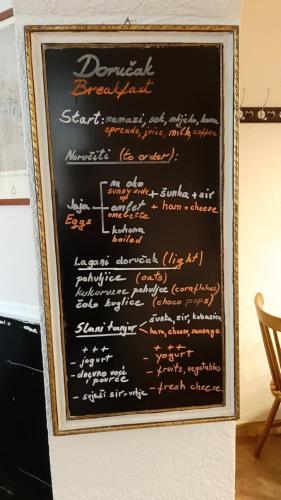 Doručak
Breakfast
Start: namazi, sok, mlijeko, kava
spreads, juice, milk, coffee
Naručiti (to order):
na oko
sunny side up
Jaja omlet + šunka + sir
Eggs omelette + ham + cheese
kuhana
boiled
Lagani doručak (light)
pahuljice (oats)
kukuruzne pahuljice (cornflakes)
čoko kuglice (choco pops)
Slani tanjur šunka, sir, kobasica
ham, cheese, sausage
+++ +++
- jogurt - yogurt
- dnevno voće i povrće - fruits, vegetables
- svježi sir - fresh cheese